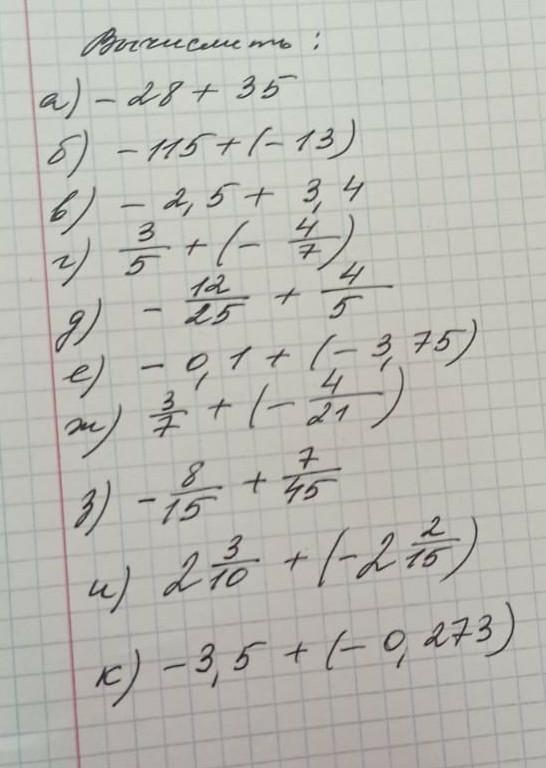 Вычислить:
а) - 28 + 35
б) - 115 + (- 13)
в) - 2,5 + 3,4
г) 3/5 + (- 4/7)
д) - 12/25 + 4/5
е) - 0,1 + (- 3,75)
ж) 3/7 + (- 4/21)
з) - 8/15 + 7/45
и) 2 3/10 + (- 2 2/15)
к) - 3,5 + (- 0,273)